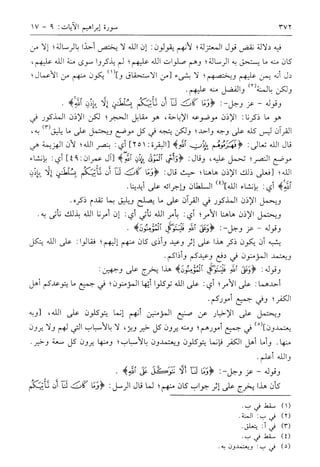 ٣٧٢ سورة إبراهيم الآيات: ٩ - ١٧
فيه دلالة نقض قول المعتزلة؛ لأنهم يقولون: إن الله لا يختص أحدًا بالرسالة؛ إلا من
كان منه ما يستحق به الرسالة؛ وهم صلوات الله عليهم؛ لم يذكروا سوى منة الله عليهم،
دل أنه يمن عليهم ويختصهم؛ لا بشيء [من الاستحقاق و](١) يكون منهم من الأعمال؛
ولكن بالمنة(٢) والفضل منه عليهم.
وقوله - عز وجل-: ﴿وَمَا كَانَ لَنَآ أَن نَّأْتِيَكُم بِسُلْطَٰنٍ إِلَّا بِإِذْنِ اللَّهِ﴾ .
هو ما ذكرنا: الإذن موضوعه الإباحة، هو مقابل الحجر؛ لكن الإذن المذكور في
القرآن ليس كله على وجه واحد؛ ولكن يتجه في كل موضع ويحتمل على ما يليق(٣) به،
قال الله تعالى: ﴿فَهَزَمُوهُم بِإِذْنِ اللَّهِ﴾ [البقرة: ٢٥١] أي: بنصر الله؛ لأن الهزيمة هي
موضع النصر؛ تحمل عليه، وقال: ﴿وَأُحْيِ الْمَوْتَىٰ بِإِذْنِ اللَّهِ﴾ [آل عمران: ٤٩] أي: بإنشاء
الله؛ [فعلى ذلك الإذن هاهنا؛ حيث قال: ﴿وَمَا كَانَ لَنَآ أَن نَّأْتِيَكُم بِسُلْطَٰنٍ إِلَّا بِإِذْنِ
اللَّهِ﴾ أي: بإنشاء الله](٤) السلطان وإجرائه على أيدينا.
ويحمل الإذن المذكور في القرآن على ما يصلح ويليق بما تقدم ذكره.
ويحتمل الإذن هاهنا الأمر؛ أي: بأمر الله نأتي أي: إن أمرنا الله بذلك نأتي به.
وقوله - عز وجل-: ﴿وَعَلَى اللَّهِ فَلْيَتَوَكَّلِ الْمُؤْمِنُونَ﴾ .
يشبه أن يكون ذكر هذا على إثر وعيد وأذى كان منهم إليهم؛ فقالوا: على الله يتكل
ويعتمد المؤمنون في دفع وعيدكم وأذاكم.
وقوله: ﴿وَعَلَى اللَّهِ فَلْيَتَوَكَّلِ الْمُؤْمِنُونَ﴾ هذا يخرج على وجهين:
أحدهما: على الأمر؛ أي: على الله توكلوا أيّها المؤمنون؛ في جميع ما يتوعدكم أهل
الكفر؛ وفي جميع أموركم.
ويحتمل على الإخبار عن صنيع المؤمنين أنهم إنما يتوكلون على الله، [وبه
يعتمدون](٥) في جميع أمورهم؛ ومنه يرون كل خير وبرّ، لا بالأسباب التي لهم ولا يرون
منها. وأما أهل الكفر فإنما يتوكلون ويعتمدون بالأسباب؛ ومنها يرون كل سعة وخير.
والله أعلم.
وقوله - عز وجل-: ﴿وَمَا لَنَآ أَلَّا نَتَوَكَّلَ عَلَى اللَّهِ﴾ .
كأن هذا يخرج على إثر جواب كان منهم؛ لما قال الرسل: ﴿وَمَا كَانَ لَنَآ أَن نَّأْتِيَكُم
(١) سقط في ب.
(٢) في ب: المنة.
(٣) في أ: يتعلق.
(٤) سقط في ب.
(٥) في ب: ويعتمدون به.